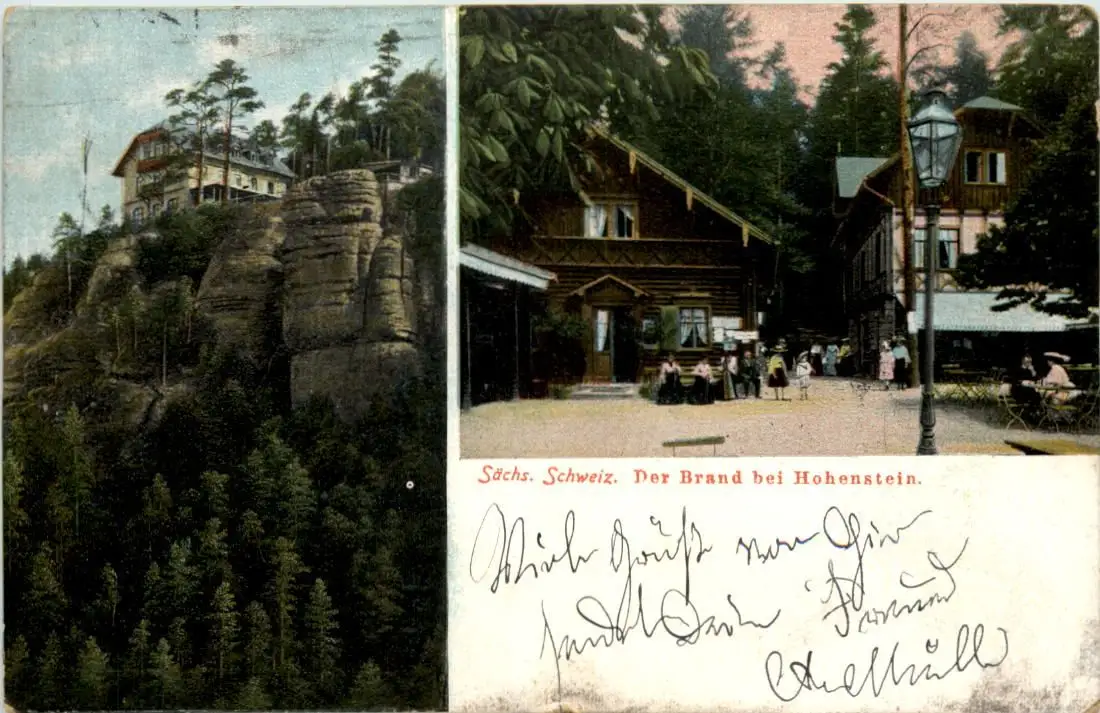 Sächs. Schweiz. Der Brand bei Hohenstein.
Viele Grüße von Hier
sendet Dein Freund